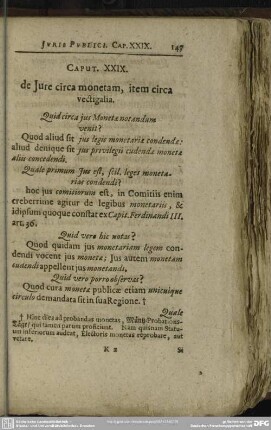 JURIS PUBLICI. CAP. XXIX. 147
CAPUT. XXIX.
de Jure circa monetam, item circa
vectigalia.
Quid circa jus Monetæ notandum
venit?
Quod aliud sit jus legis monetariæ condendæ:
aliud denique sit jus privilegii cudendæ monetæ
aliis concedendi.
Quale primum Jus est, scil. leges moneta-
rias condendi?
hoc jus comitiorum est, in Comitiis enim
creberrime agitur de legibus monetariis, &
id ipsum quoque constat ex Capit. Ferdinandi III.
art. 36.
Quid vero hic notas?
Quod quidam jus monetariam legem con-
dendi vocent jus moneta; Jus autem monetam
cudendi appellent jus monetandi.
Quid vero porro observas?
Quod cura monetæ publicæ etiam unicuique
circulo demandata sit in sua Regione. †
Quale
† Hinc diæta ad probandas monetas, Münz-Probations-
Tage/ qui tamen parum proficiunt. Nam quisnam Statu-
um inferiorum audeat, Electoris monetas reprobare, aut
vetare.
K 2 Si